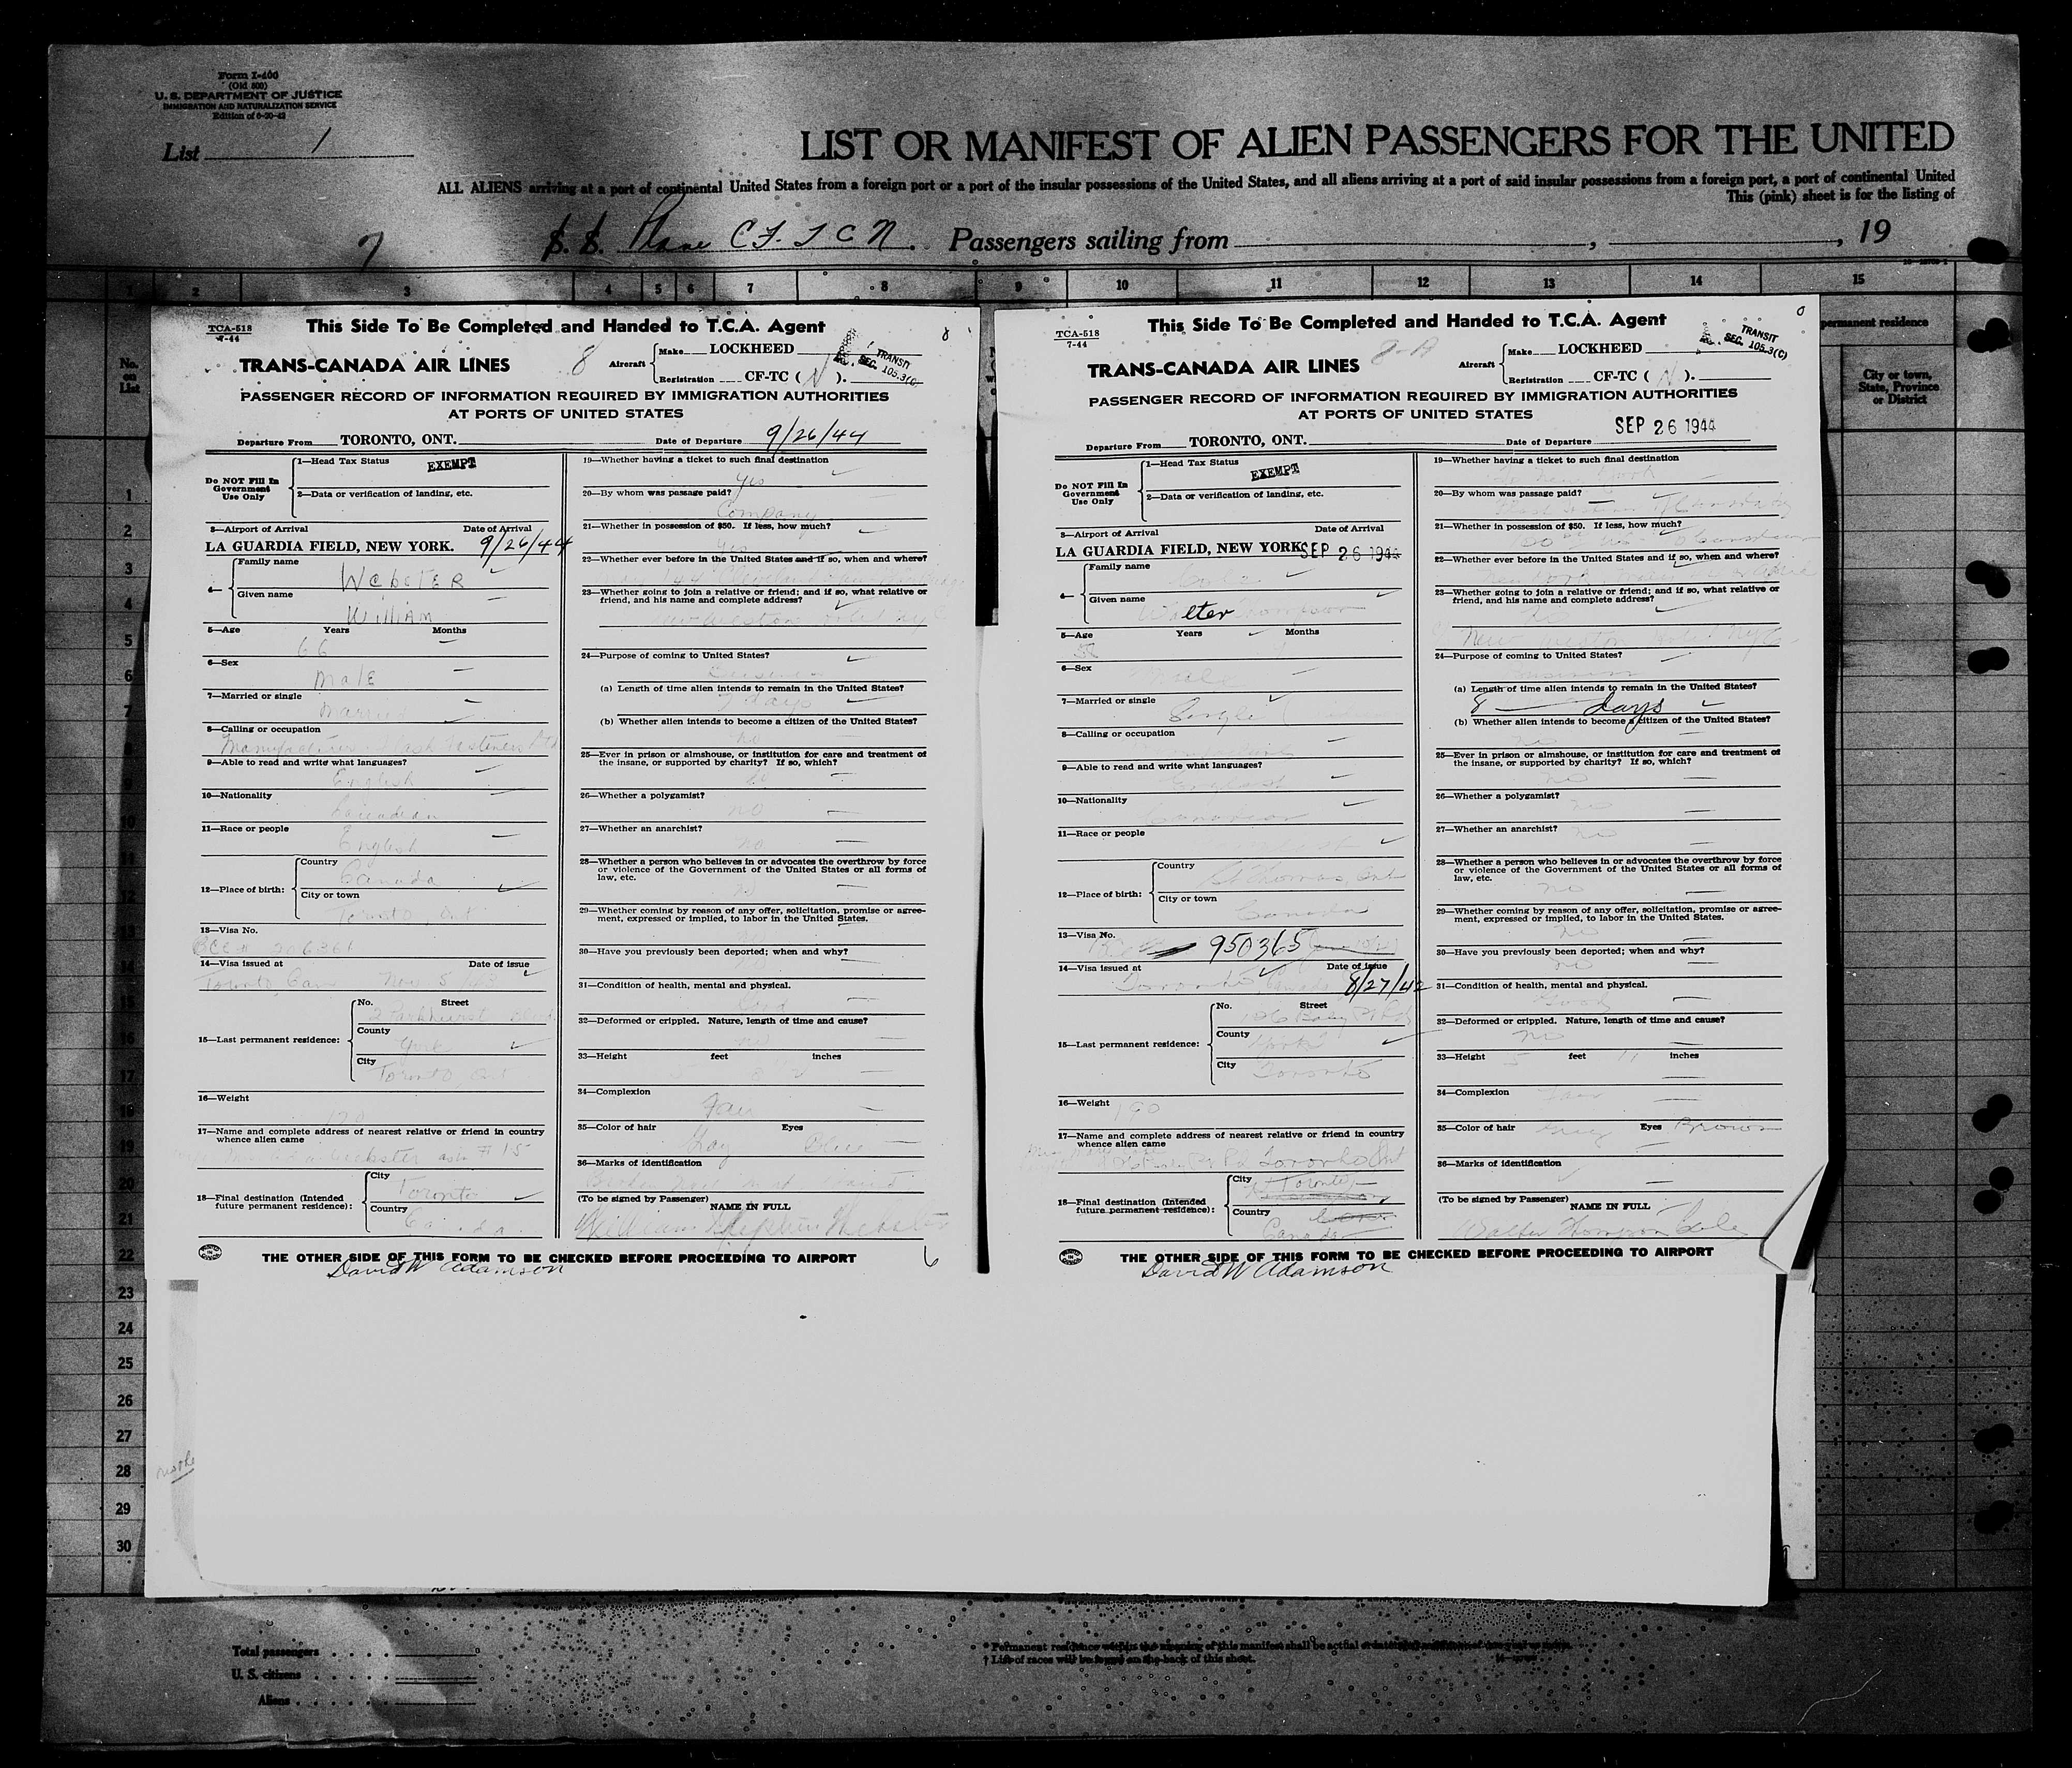 Form I-400
(Old 500)
U. S. DEPARTMENT OF JUSTICE
IMMIGRATION AND NATURALIZATION SERVICE
Edition of 6-20-43
List 1
LIST OR MANIFEST OF ALIEN PASSENGERS FOR THE UNITED
ALL ALIENS arriving at a port of continental United States from a foreign port or a port of the insular possessions of the United States, and all aliens arriving at a port of said insular possessions from a foreign port, a port of continental United
This (pink) sheet is for the listing of
7
S. S. Plane CF. TCN. Passengers sailing from , , 19
1 2 3 4 5 6 7 8 9 10 11 12 13 14 15
No. on List
permanent residence
City or town, State, Province or District
TCA-518
7-44
This Side To Be Completed and Handed to T.C.A. Agent
8
TRANSIT
SEC. 105.3(C)
TRANS-CANADA AIR LINES
8
Aircraft
Make LOCKHEED
Registration CF-TC ( N ).
PASSENGER RECORD OF INFORMATION REQUIRED BY IMMIGRATION AUTHORITIES
AT PORTS OF UNITED STATES
Departure From TORONTO, ONT. Date of Departure 9/26/44
Do NOT Fill In
Government
Use Only
1—Head Tax Status EXEMPT
2—Data or verification of landing, etc.
3—Airport of Arrival Date of Arrival
LA GUARDIA FIELD, NEW YORK. 9/26/44
4—
Family name WEBSTER
Given name WILLIAM
5—Age Years Months
66
6—Sex
MALE
7—Married or single
Married
8—Calling or occupation
Manufacturer
9—Able to read and write what languages?
English
10—Nationality
Canadian
11—Race or people
English
12—Place of birth:
Country
Canada
City or town
Toronto, Ont
13—Visa No.
BCC # 206361
14—Visa issued at Date of issue
Toronto, Can Nov 5
15—Last permanent residence:
No. Street
2 Parkhurst Blvd
County
York
City
Toronto, Ont
16—Weight
170
17—Name and complete address of nearest relative or friend in country
whence alien came
Webster as in # 15
18—Final destination (Intended
future permanent residence):
City
Toronto
Country
Canada
19—Whether having a ticket to such final destination
Yes
20—By whom was passage paid?
Company
21—Whether in possession of $50. If less, how much?
Yes
22—Whether ever before in the United States and if so, when and where?
Cleveland
23—Whether going to join a relative or friend; and if so, what relative or
friend, and his name and complete address?
New Weston Hotel
24—Purpose of coming to United States?
Business
(a) Length of time alien intends to remain in the United States?
7 days
(b) Whether alien intends to become a citizen of the United States?
No
25—Ever in prison or almshouse, or institution for care and treatment of
the insane, or supported by charity? If so, which?
No
26—Whether a polygamist?
No
27—Whether an anarchist?
No
28—Whether a person who believes in or advocates the overthrow by force
or violence of the Government of the United States or all forms of
law, etc.
No
29—Whether coming by reason of any offer, solicitation, promise or agree-
ment, expressed or implied, to labor in the United States.
30—Have you previously been deported; when and why?
31—Condition of health, mental and physical.
Good
32—Deformed or crippled. Nature, length of time and cause?
No
33—Height feet inches
34—Complexion
Fair
35—Color of hair Eyes
Gray Blue
36—Marks of identification
(To be signed by Passenger) NAME IN FULL
William Stephen Webster
THE OTHER SIDE OF THIS FORM TO BE CHECKED BEFORE PROCEEDING TO AIRPORT
David W Adamson
6
TCA-518
7-44
This Side To Be Completed and Handed to T.C.A. Agent
TRANSIT
SEC. 105.3(C)
TRANS-CANADA AIR LINES
8-A
Aircraft
Make LOCKHEED
Registration CF-TC ( N ).
PASSENGER RECORD OF INFORMATION REQUIRED BY IMMIGRATION AUTHORITIES
AT PORTS OF UNITED STATES
Departure From TORONTO, ONT. Date of Departure SEP 26 1944
Do NOT Fill In
Government
Use Only
1—Head Tax Status EXEMPT
2—Data or verification of landing, etc.
3—Airport of Arrival Date of Arrival
LA GUARDIA FIELD, NEW YORK. SEP 26 1944
4—
Family name Cole
Given name Walter Thompson
5—Age Years Months
6—Sex
Male
7—Married or single
Single
8—Calling or occupation
9—Able to read and write what languages?
English
10—Nationality
Canadian
11—Race or people
12—Place of birth:
Country
St Thomas, Ont
City or town
Canada
13—Visa No.
950365
14—Visa issued at Date of issue
Toronto Canada 8/27/42
15—Last permanent residence:
No. Street
County
York
City
Toronto
16—Weight
190
17—Name and complete address of nearest relative or friend in country
whence alien came
Toronto Ont
18—Final destination (Intended
future permanent residence):
City
Toronto
Country
Canada
19—Whether having a ticket to such final destination
20—By whom was passage paid?
21—Whether in possession of $50. If less, how much?
22—Whether ever before in the United States and if so, when and where?
23—Whether going to join a relative or friend; and if so, what relative or
friend, and his name and complete address?
New Weston Hotel NYC
24—Purpose of coming to United States?
(a) Length of time alien intends to remain in the United States?
8 days
(b) Whether alien intends to become a citizen of the United States?
No
25—Ever in prison or almshouse, or institution for care and treatment of
the insane, or supported by charity? If so, which?
No
26—Whether a polygamist?
No
27—Whether an anarchist?
No
28—Whether a person who believes in or advocates the overthrow by force
or violence of the Government of the United States or all forms of
law, etc.
No
29—Whether coming by reason of any offer, solicitation, promise or agree-
ment, expressed or implied, to labor in the United States.
No
30—Have you previously been deported; when and why?
No
31—Condition of health, mental and physical.
Good
32—Deformed or crippled. Nature, length of time and cause?
No
33—Height 5 feet 11 inches
34—Complexion
Fair
35—Color of hair Grey Eyes Brown
36—Marks of identification
(To be signed by Passenger) NAME IN FULL
Walter Thompson Cole
THE OTHER SIDE OF THIS FORM TO BE CHECKED BEFORE PROCEEDING TO AIRPORT
David W Adamson
1
2
3
4
5
6
7
8
9
10
11
12
13
14
15
16
17
18
19
20
21
22
23
24
25
26
27
28
29
30
Total passengers
U. S. citizens
Aliens
* Permanent residence within the meaning of this manifest shall be actual
† List of races will be found on the back of this sheet.